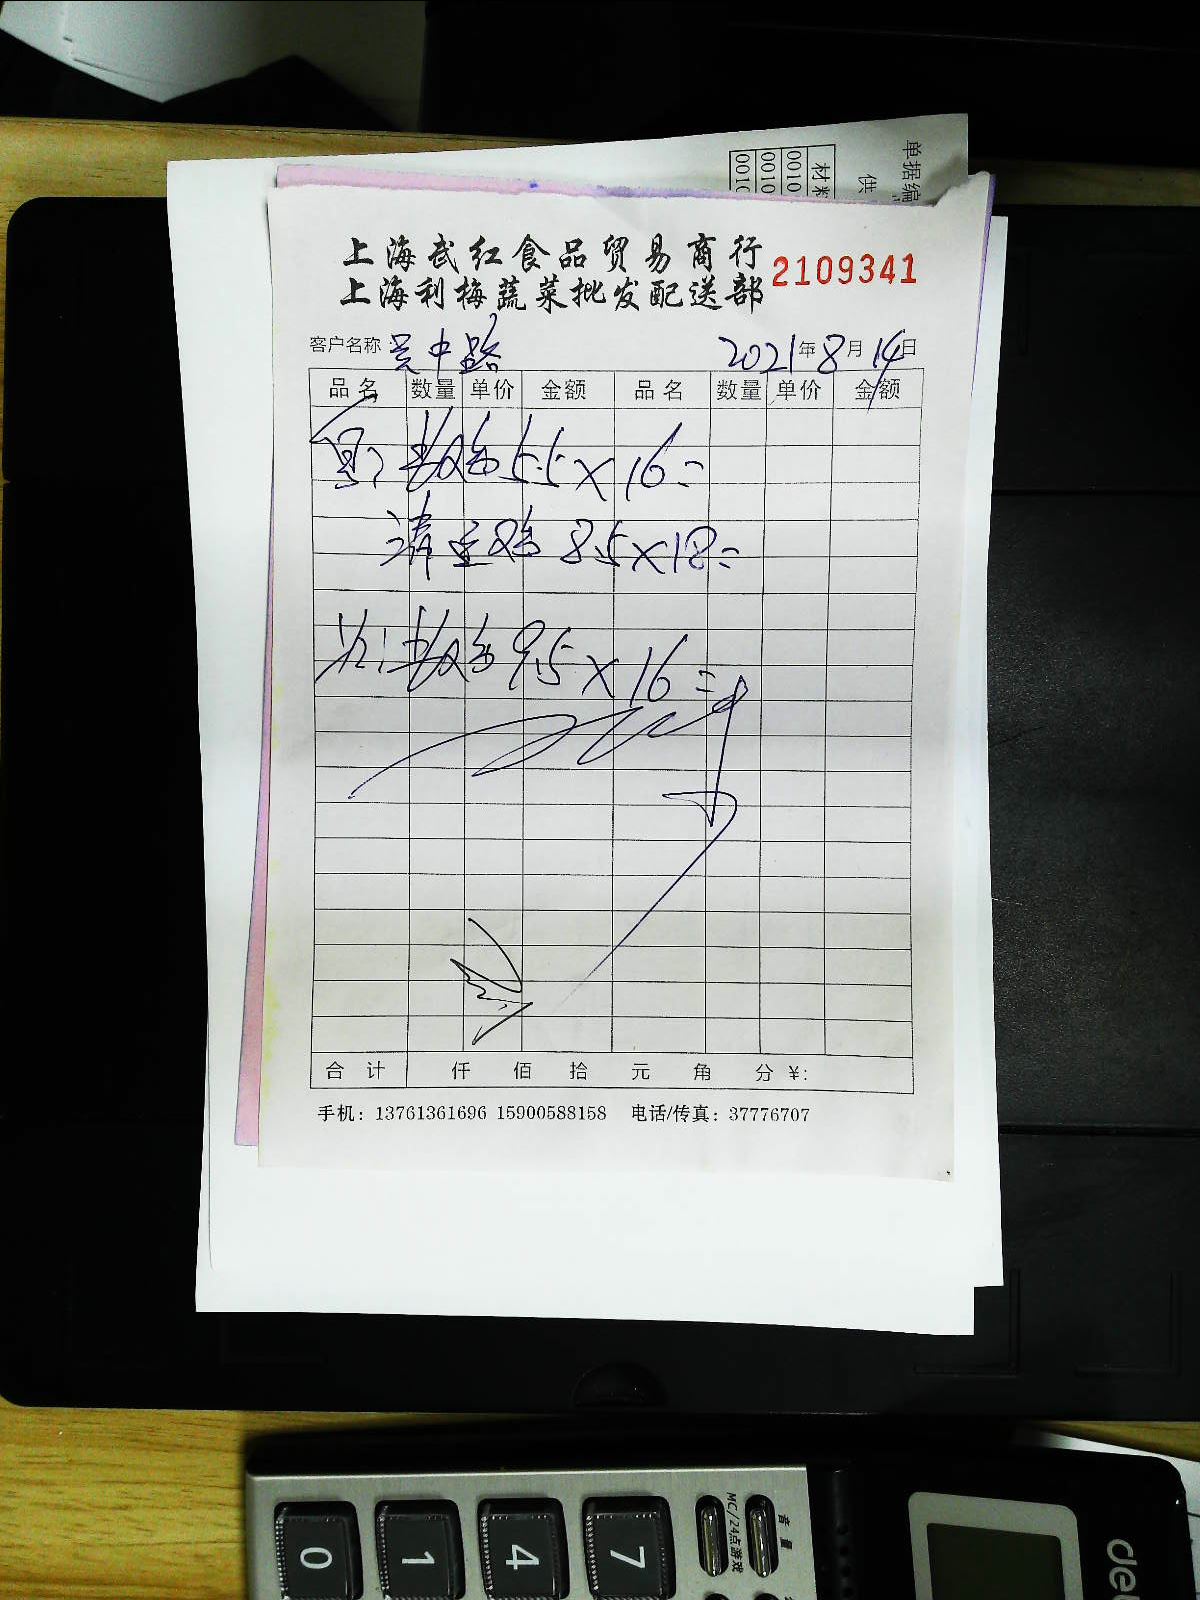 单据编
供
材料
0010
0010
0010
上海武红食品贸易商行
上海利梅蔬菜批发配送部
2109341
客户名称：吴中路 2021年8月14日
品名 数量 单价 金额 品名 数量 单价 金额
5.5×16=
8.5×18=
9.5×16=
合计 仟 佰 拾 元 角 分 ¥:
手机：13761361696 15900588158 电话/传真：37776707
0 1 4 7
MC/24点游戏
音量
del